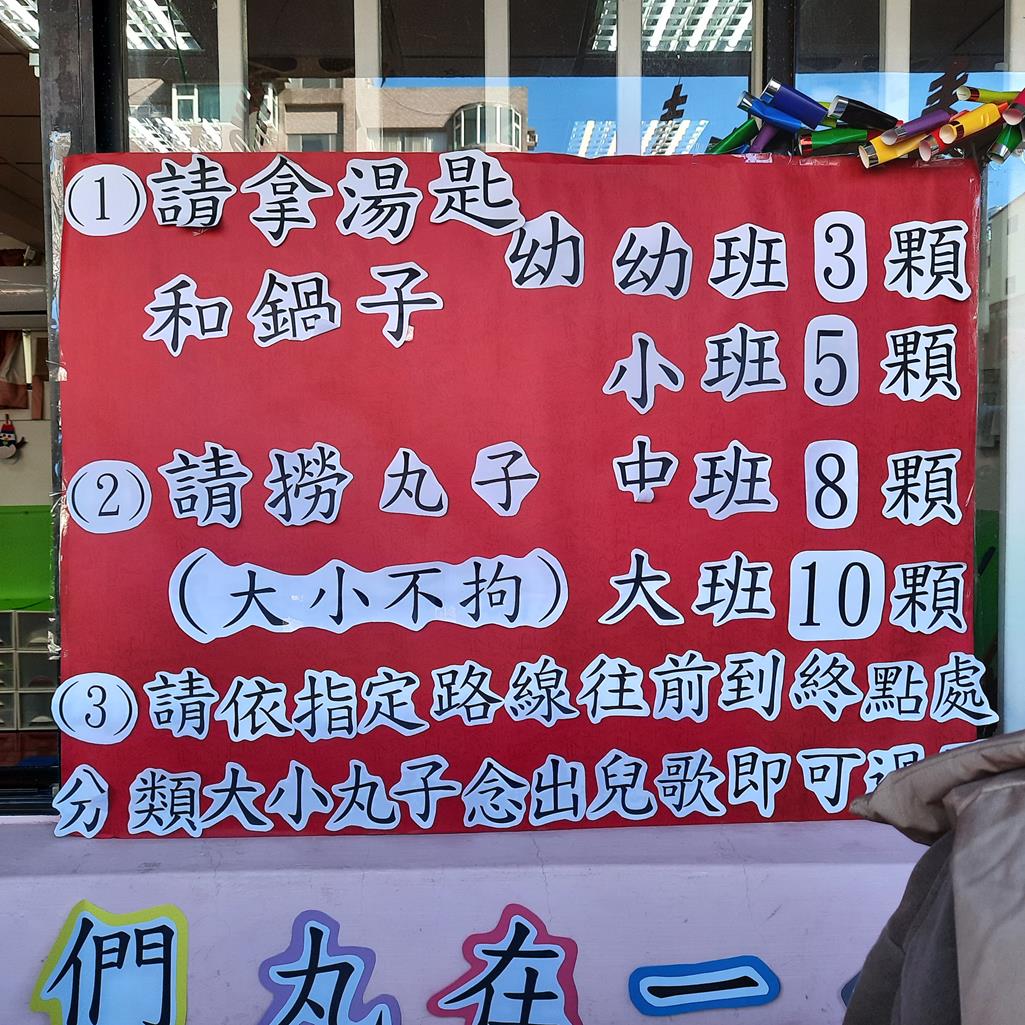 ①請拿湯匙
和鍋子
幼幼班3顆
小班5顆
②請撈丸子
中班8顆
(大小不拘)
大班10顆
③請依指定路線往前到終點處
分類大小丸子念出兒歌即可過
們丸在一